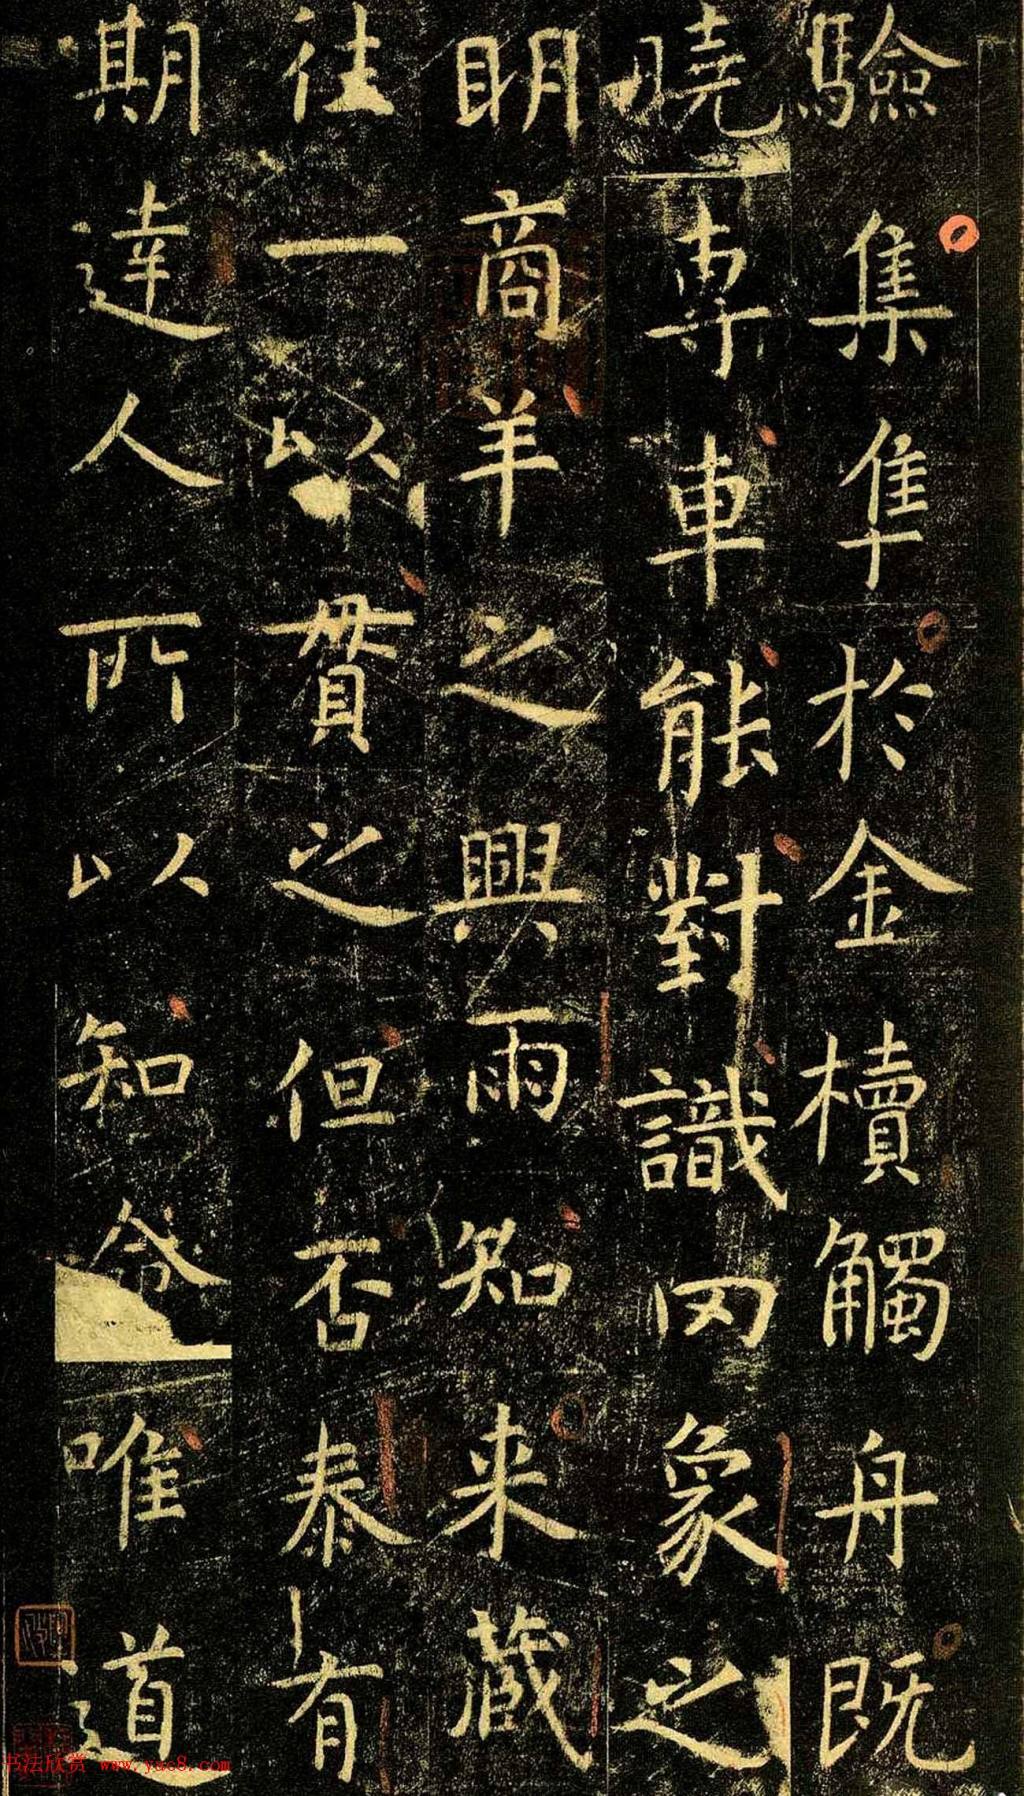 驗集隼於金櫝觸舟既
曉專車能對識罔象之
明商羊之興雨知來藏
往一以貫之但否泰有
期達人所以知命唯道
书法欣赏 www.yac8.com